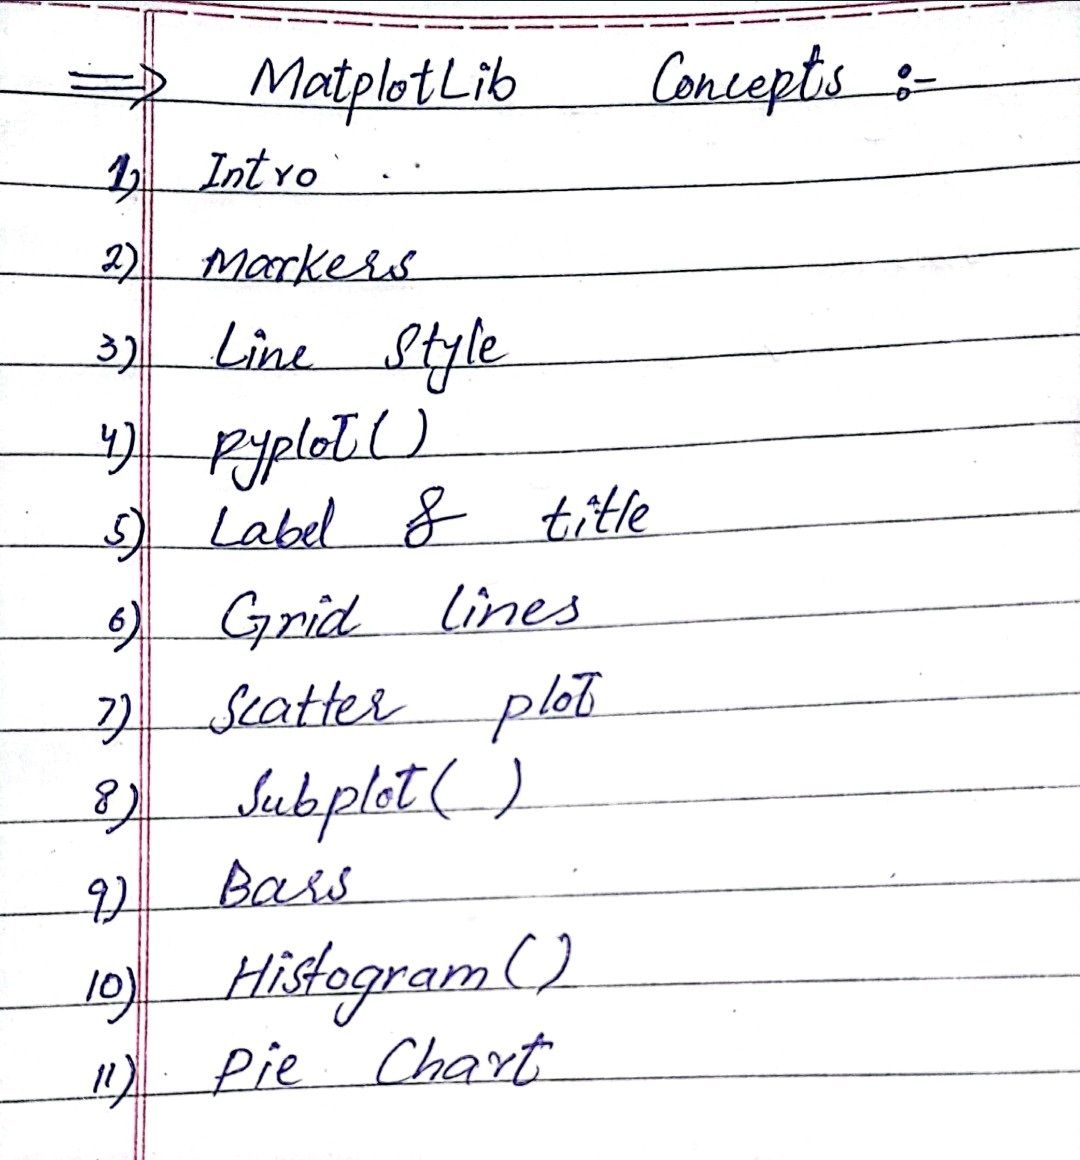 => MatplotLib Concepts :-
1) Intro
2) Markers
3) Line Style
4) pyplot()
5) Label & title
6) Grid lines
7) Scatter plot
8) Subplot( )
9) Bars
10) Histogram()
11) Pie Chart